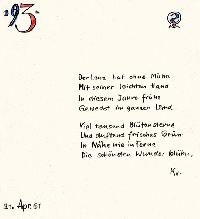 93.
Der Lenz hat ohne Mühe
Mit seiner leichten Hand
In diesem Jahre frühe
Geweckt im ganzen Land
Viel tausend Blütensterne
Und duftend frisches Grün
In Nähe wie in Ferne
Die schönsten Wunder blühn.
21. Apr. 51